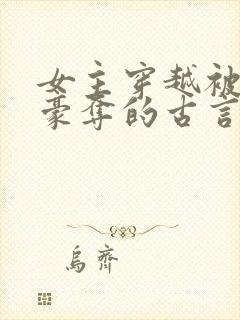 女主穿越被
豪夺的古言
烏齊